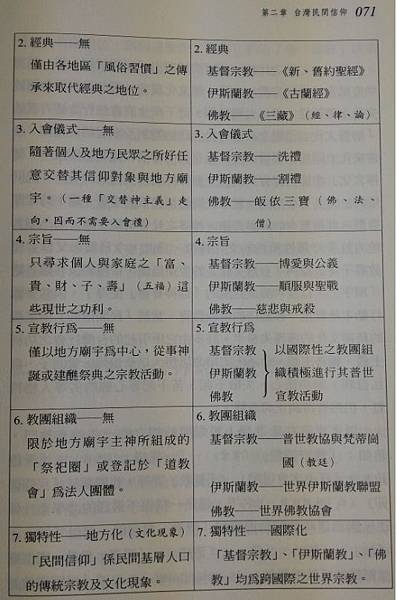 第二章 台灣民間信仰 071
2. 經典——無
僅由各地區「風俗習慣」之傳
承來取代經典之地位。
2. 經典
基督宗教——《新、舊約聖經》
伊斯蘭教——《古蘭經》
佛教——《三藏》（經、律、論）
3. 入會儀式——無
隨著個人及地方民眾之所好任
意交替其信仰對象與地方廟
宇。（一種「交替神主義」走
向，因而不需要入會禮）
3. 入會儀式
基督宗教——洗禮
伊斯蘭教——割禮
佛教——皈依三寶（佛、法、
僧）
4. 宗旨——無
只尋求個人與家庭之「富、
貴、財、子、壽」（五福）這
些現世之功利。
4. 宗旨
基督宗教——博愛與公義
伊斯蘭教——順服與聖戰
佛教——慈悲與戒殺
5. 宣教行為——無
僅以地方廟宇為中心，從事神
誕或建醮祭典之宗教活動。
5. 宣教行為
基督宗教
伊斯蘭教
佛教
以國際性之教團組
織積極進行其普世
宣教活動
6. 教團組織——無
限於地方廟宇主神所組成的
「祭祀圈」或登記於「道教
會」為法人團體。
6. 教團組織
基督宗教——普世教協與梵蒂崗
國（教廷）
伊斯蘭教——世界伊斯蘭教聯盟
佛教——世界佛教協會
7. 獨特性——地方化（文化現象）
「民間信仰」係民間基層人口
的傳統宗教及文化現象。
7. 獨特性——國際化
「基督宗教」、「伊斯蘭教」、「佛
教」均為跨國際之世界宗教。